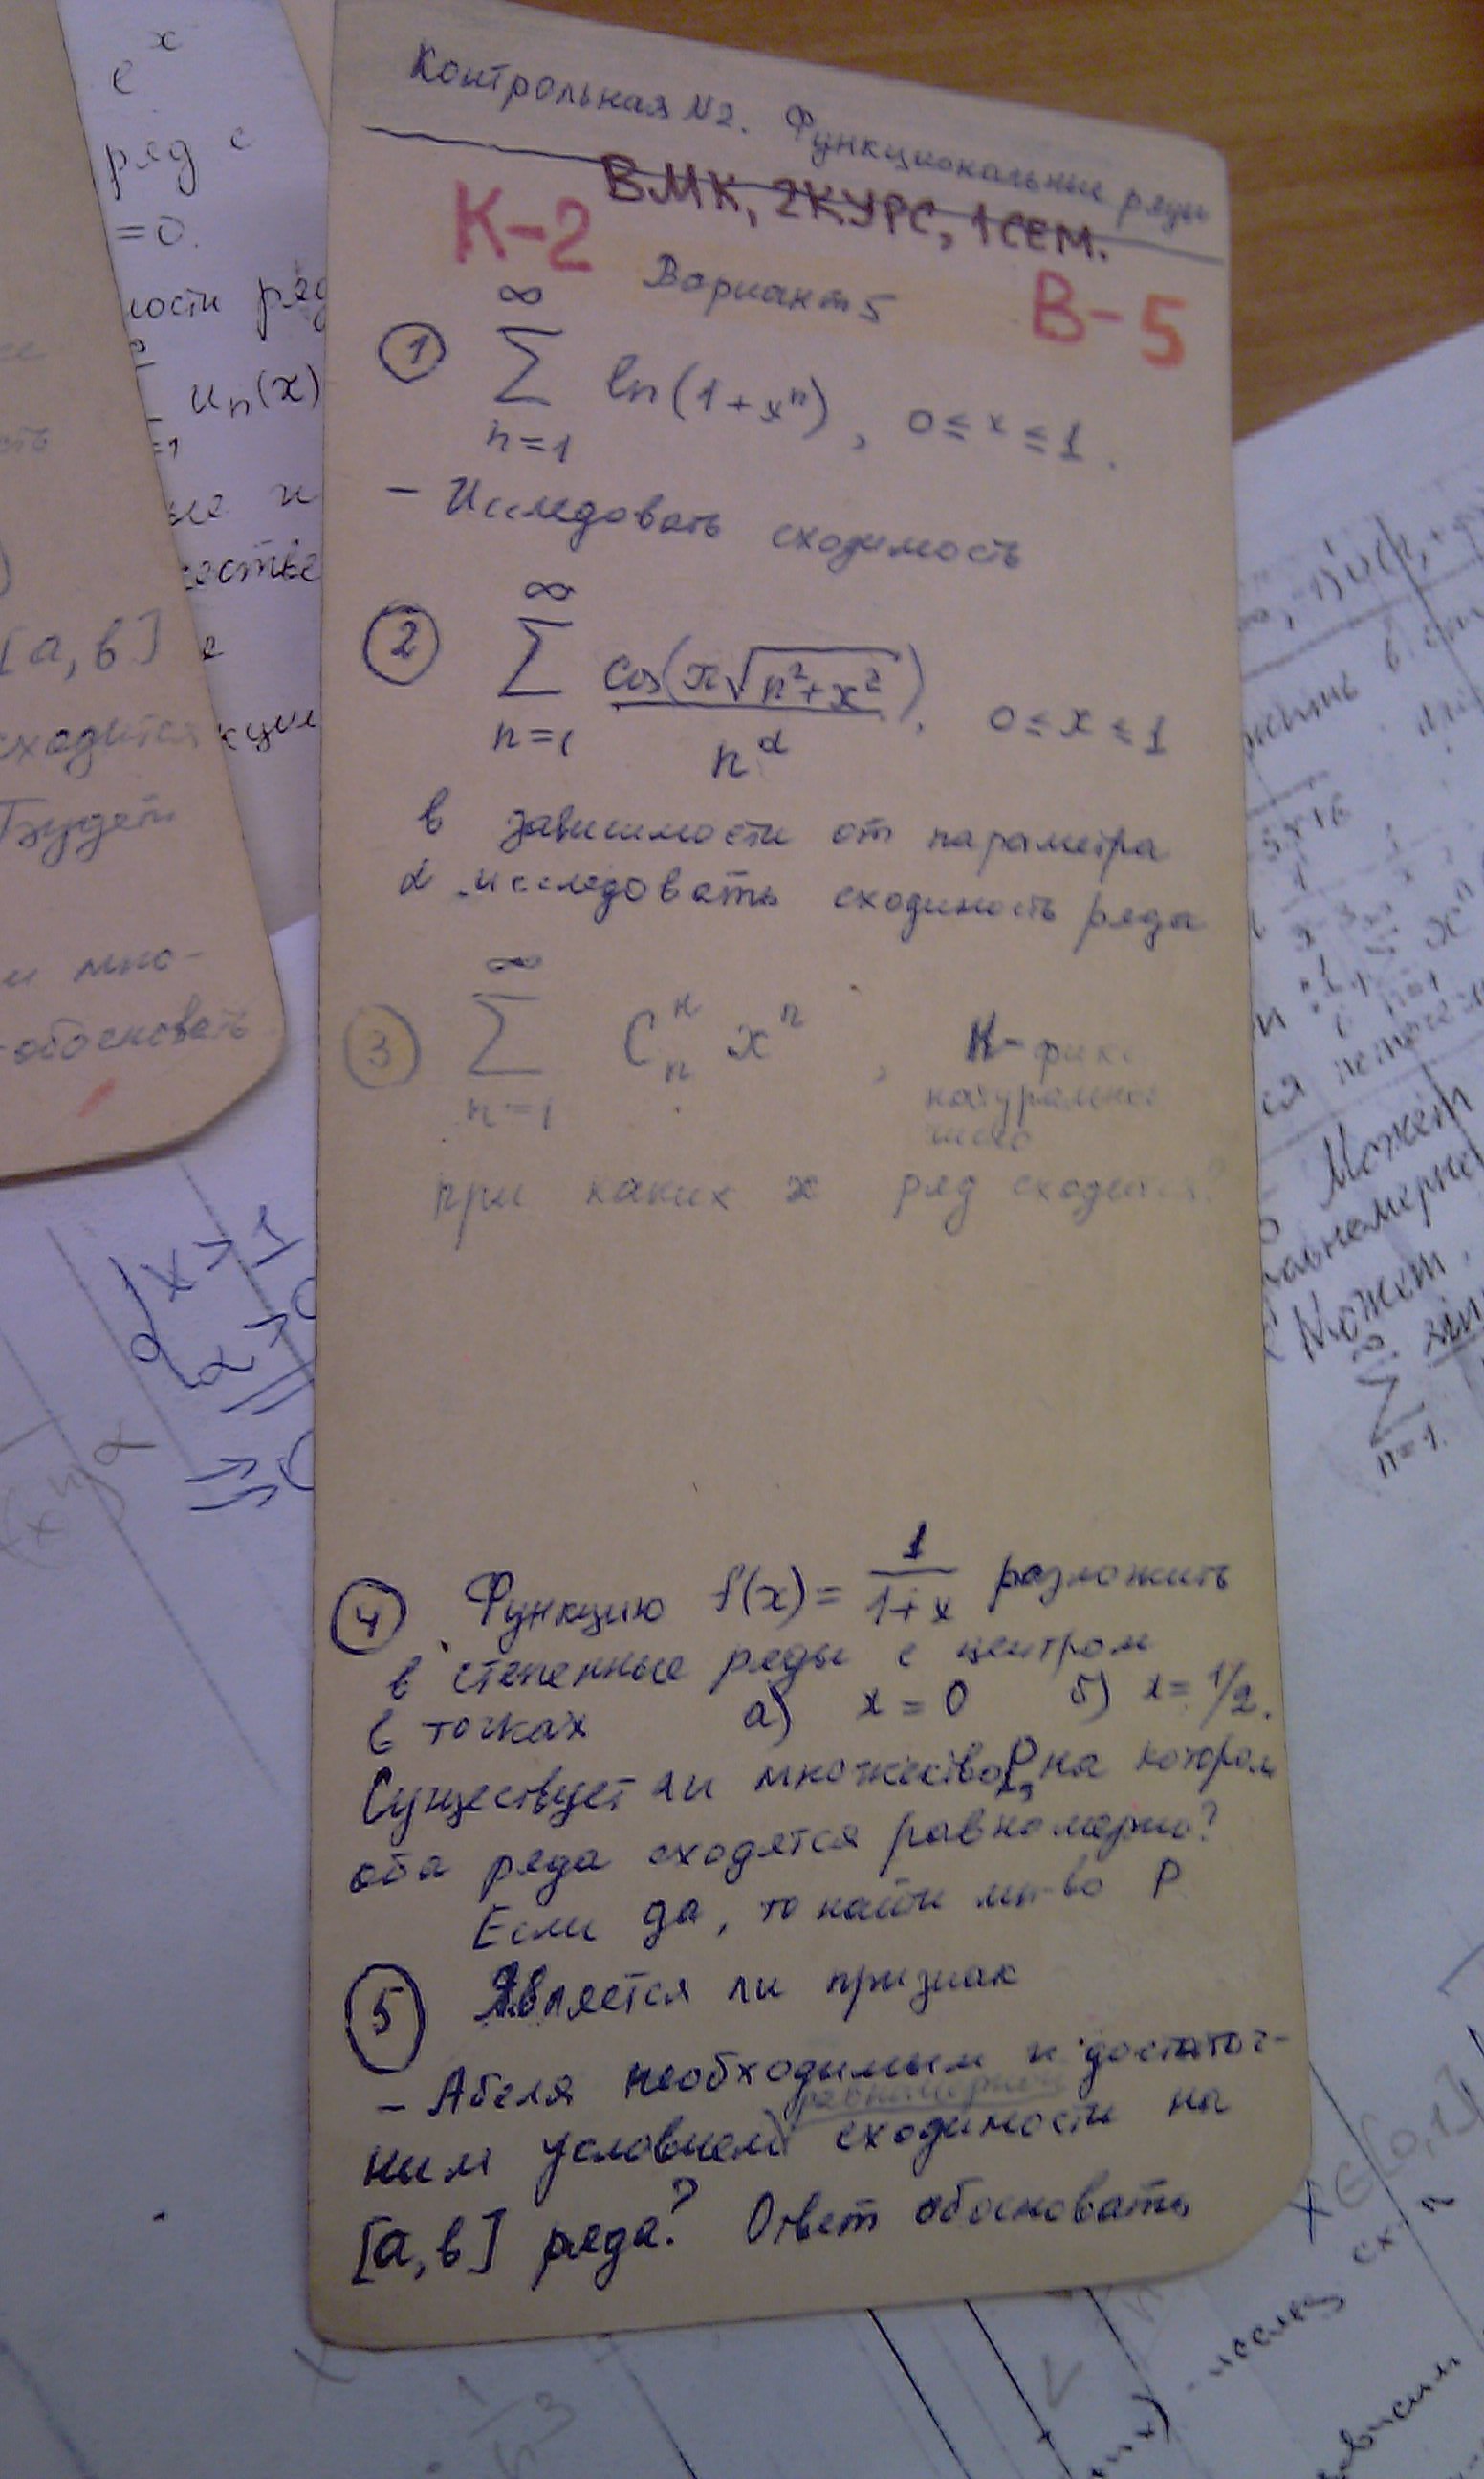 Контрольная №2. Функциональные ряды
ВМК, 2 КУРС, 1 СЕМ.
К-2
Вариант 5
В-5
① ∞ ∑ n=1 ln(1+xⁿ), 0 ≤ x ≤ 1.
- Исследовать сходимость
② ∞ ∑ n=1 cos(π√(n²+x²)) / n^α, 0 ≤ x ≤ 1
в зависимости от параметра
α исследовать сходимость ряда
③ ∞ ∑ n=1 C xⁿ, К-фикс
натуральное
число
при каких x ряд сходится?
④ Функцию f(x) = 1/(1+x) разложить
в степенные ряды с центром
в точках а) x = 0 б) x = 1/2.
Существует ли множество P, на котором
оба ряда сходятся равномерно?
Если да, то найти мн-во P
⑤ Является ли признак
- Абеля необходимым и достаточ-
равномерной
ным условием сходимости на
[a, b] ряда? Ответ обосновать
e^x
ряд с
=0.
ности ряд
uₙ(x)
[a, b]
сходится
Будет
и мно-
обосновать
x→1
Может
равномерно
Может
∑
n=1
x ∈ [0,1]